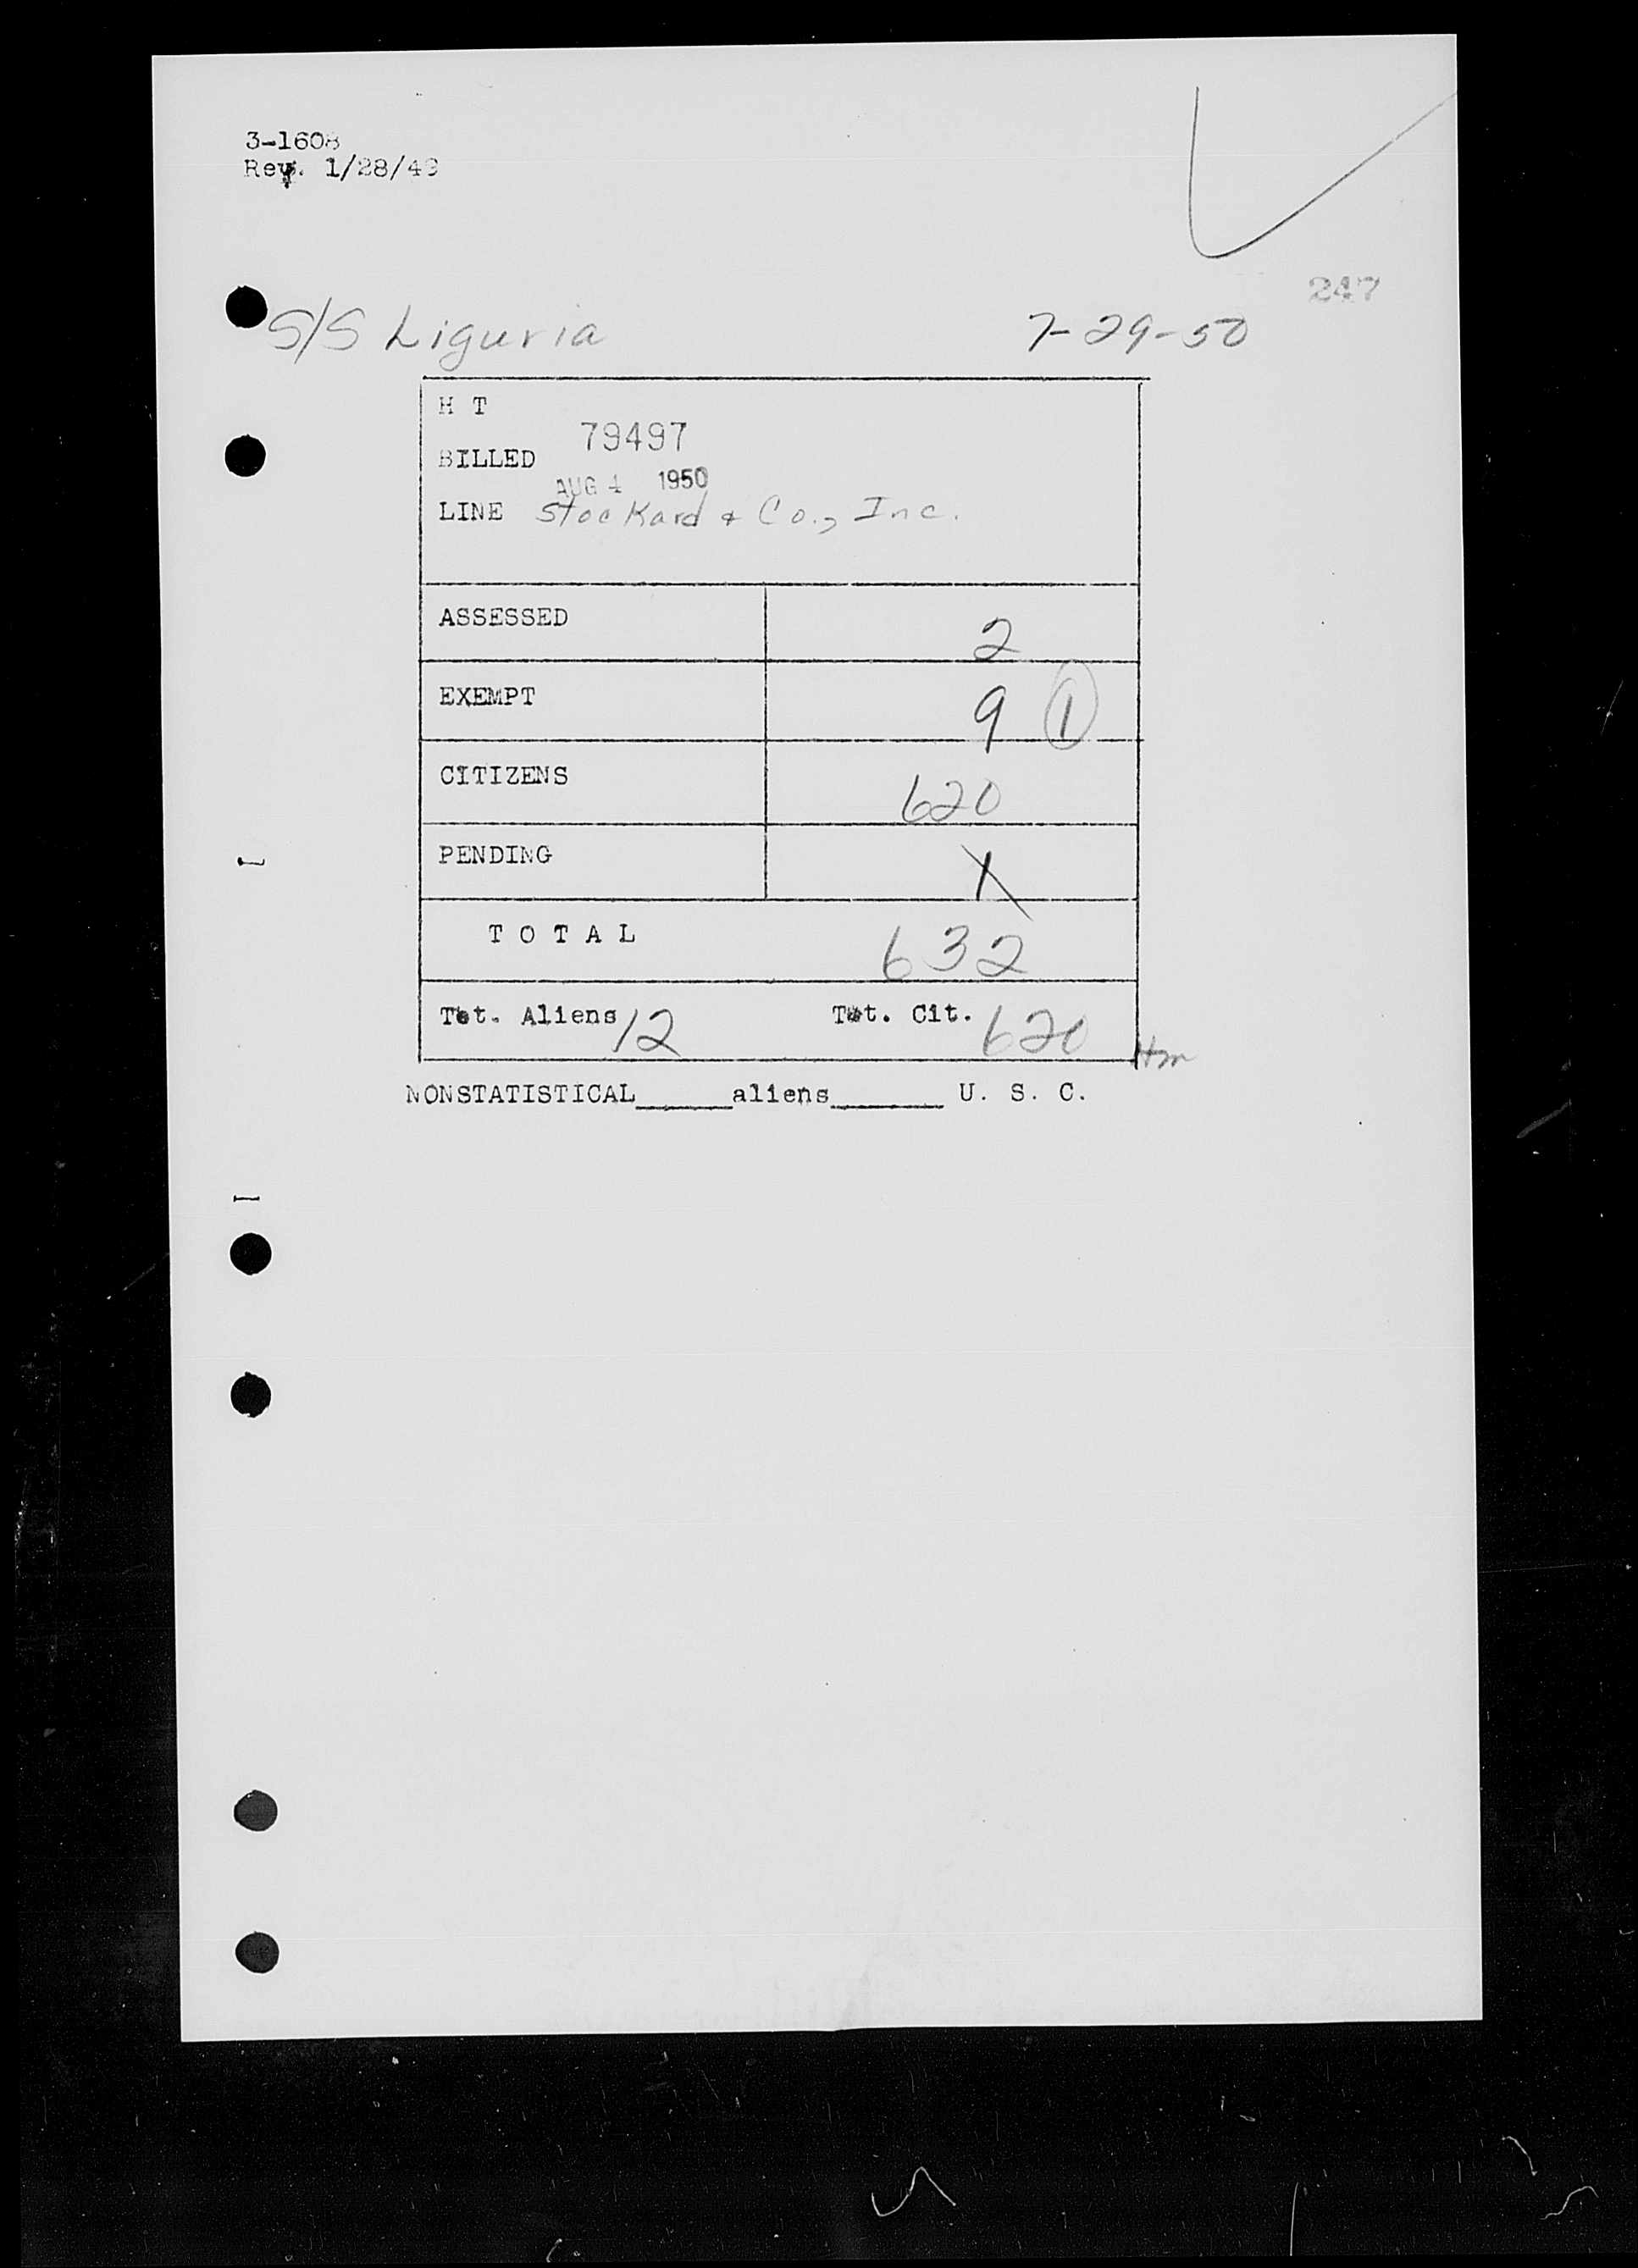 3-1608
Rev. 1/28/49
247
S/S Liguria 7-29-50
H T
79497
BILLED
AUG 4 1950
LINE Stockard & Co., Inc.
ASSESSED 2
EXEMPT 9 1
CITIZENS 620
PENDING 1
TOTAL 632
Tot. Aliens 12 Tot. Cit. 620
NONSTATISTICAL_____aliens______ U. S. C.